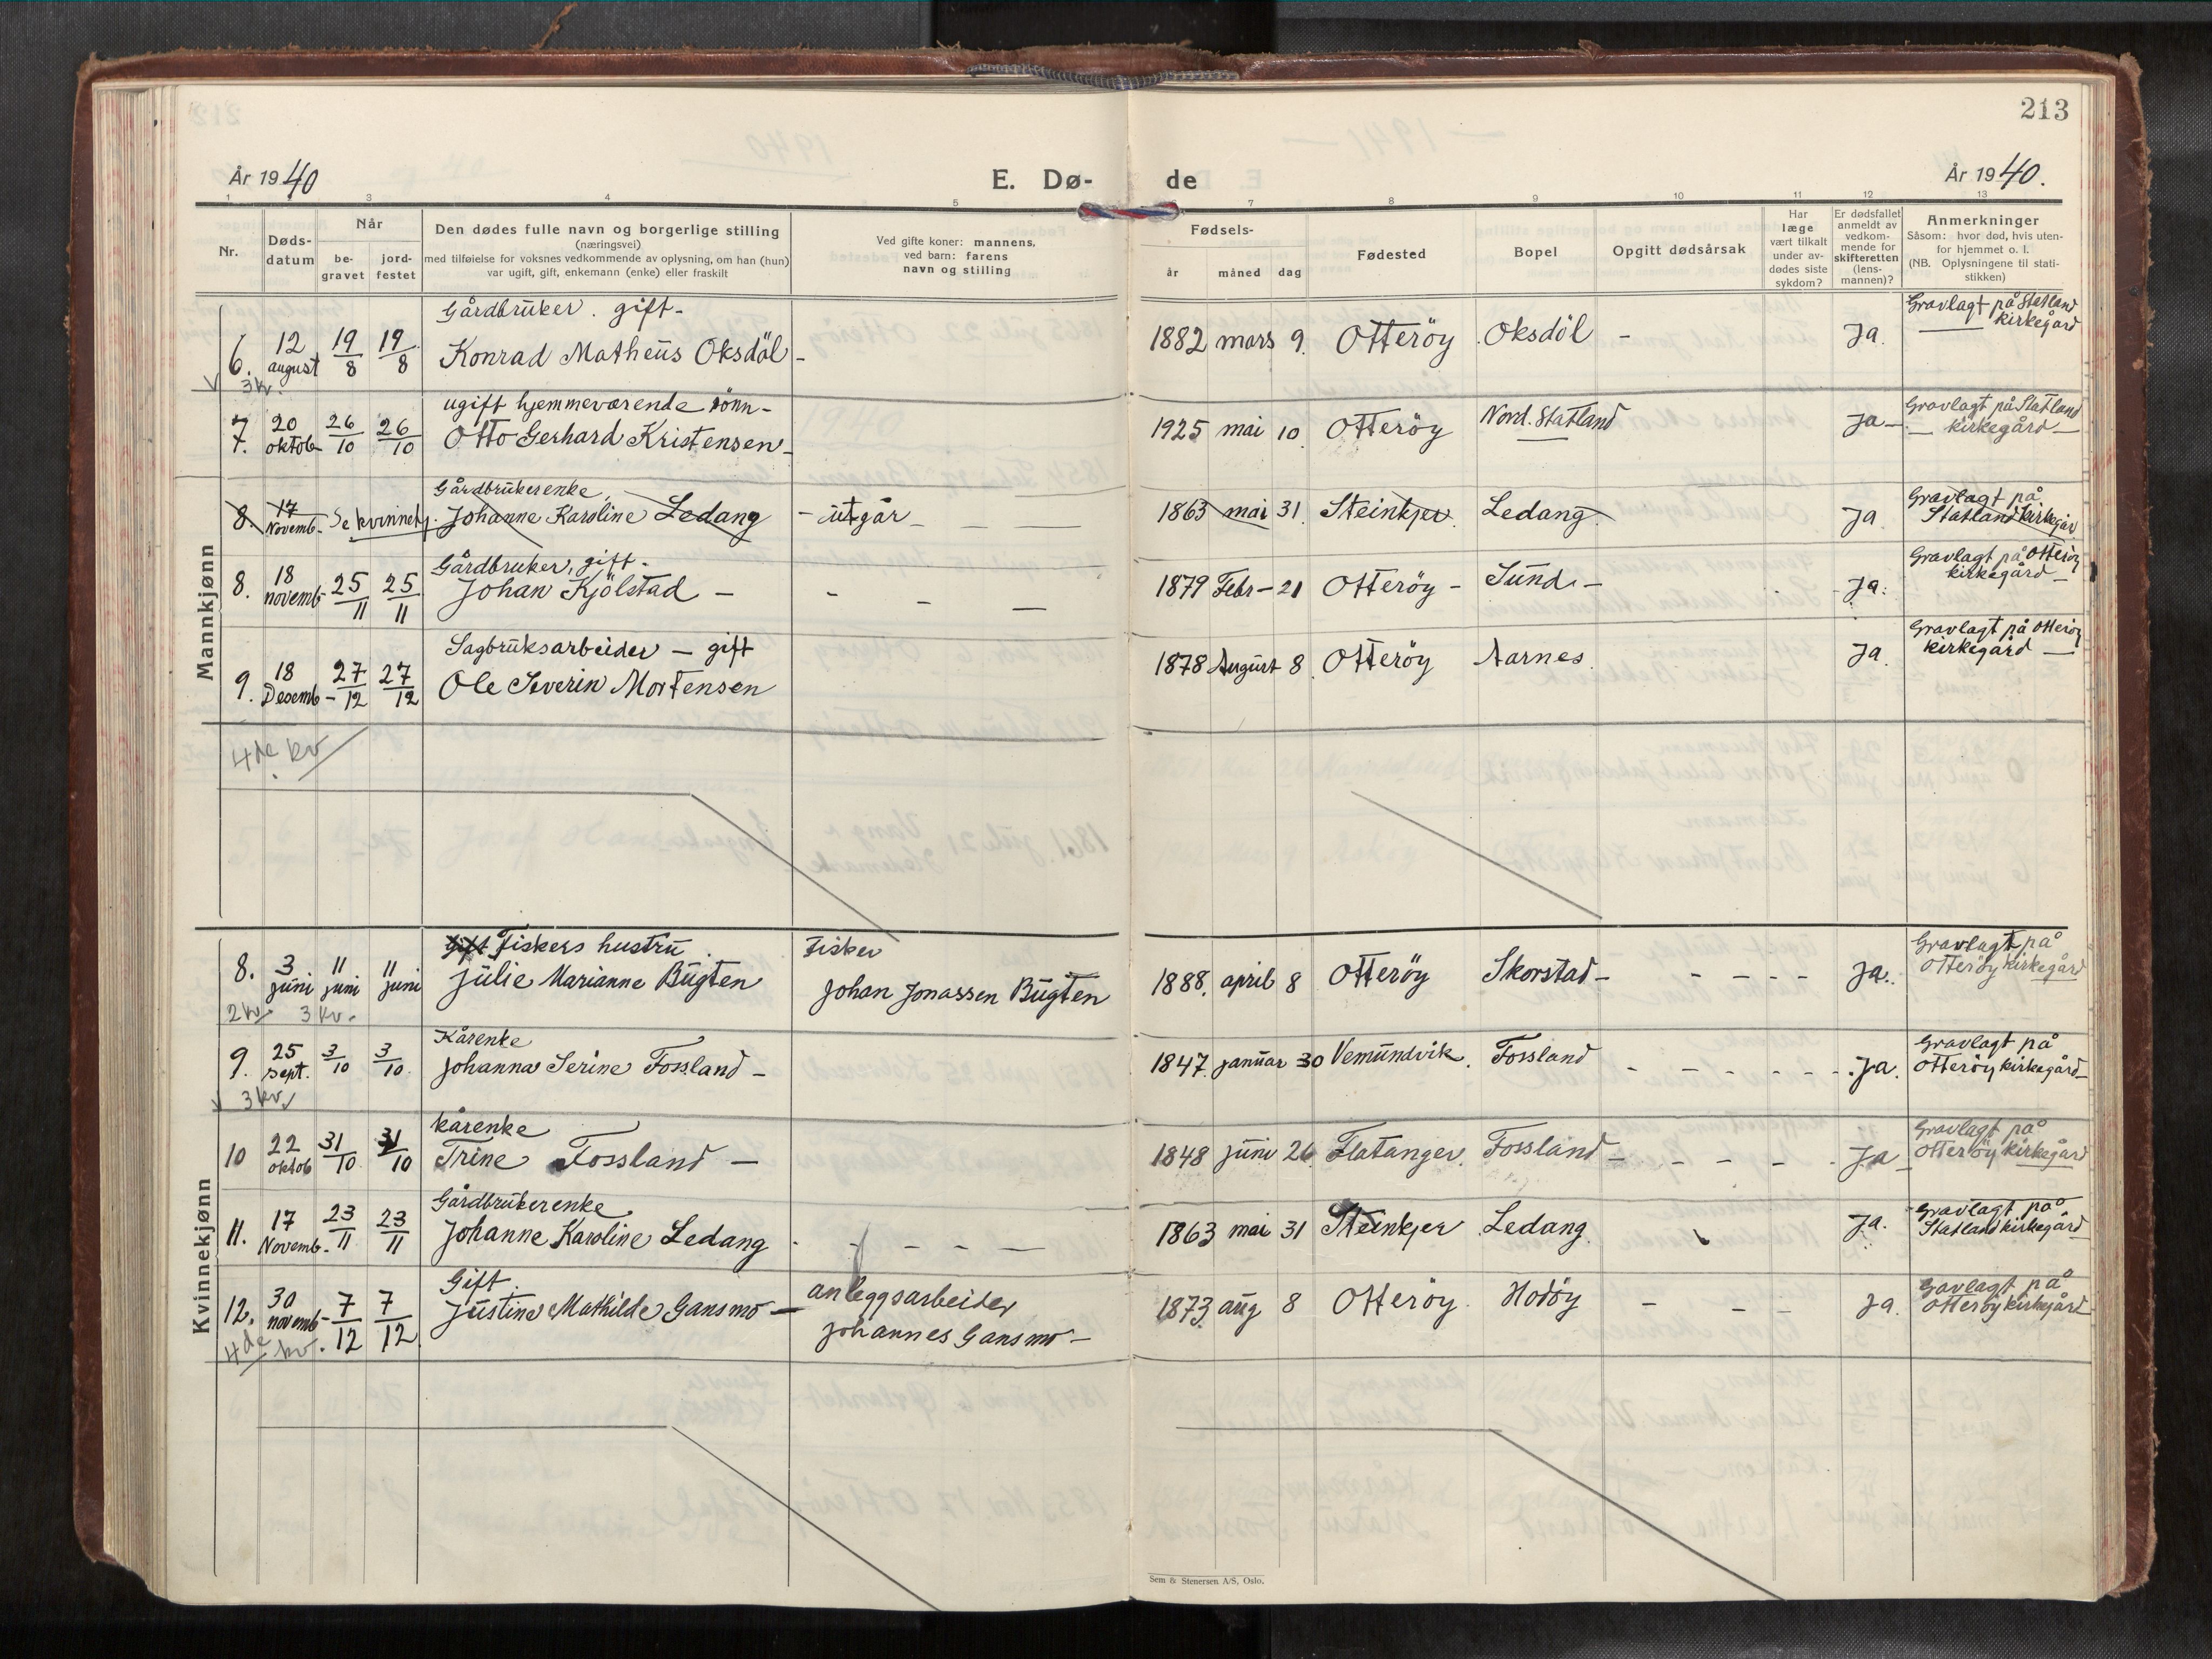 213
År 1940
E. Dø-
de
År 1940.
1 2 3 4 5 7 8 9 10 11 12 13
Nr.
Døds-
datum
Når
be-
gravet
jord-
festet
Den dødes fulle navn og borgerlige stilling
(næringsvei)
med tilføielse for voksnes vedkommende av oplysning, om han (hun)
var ugift, gift, enkemann (enke) eller fraskilt
Ved gifte koner: mannens,
ved barn: farens
navn og stilling
Fødsels-
år måned dag
Fødested
Bopel
Opgitt dødsårsak
Har
læge
vært tilkalt
under av-
dødes siste
sykdom?
Er dødsfallet
anmeldt av
vedkom-
mende for
skifteretten
(lens-
mannen)?
Anmerkninger
Såsom: hvor død, hvis uten-
for hjemmet o. l.
(NB. Oplysningene til stati-
stikken)
Mannkjønn
Gårdbruker. gift-
6. 12 august 19/8 19/8 Konrad Matheus Oksdöl - 1882 mars 9. Otteröy Oksdöl - Ja.
Gravlagt på Statland
kirkegård
3 kv.
ugift hjemmeværende sönn-
7. 20 oktob- 26/10 26/10 Otto Gerhard Kristensen - 1925 mai 10 Otteröy Nord. Statland Ja-
Gravlagt på Statland
kirkegård-
Gårdbrukerenke,
8. 17 Novemb- Se kvinnekj. Johanne Karoline Ledang - utgår - 1863 mai 31. Steinkjer. Ledang. Ja
Gravlagt på
Statland kirkegår
Gårdbruker, gift.
8. 18 novemb- 25/11 25/11 Johan Kjölstad - 1879 Febr- 21 Otteröy - Sund. - Ja.
Gravlagt på Otteröy
kirkegård-
Sagbruksarbeider - gift
9. 18 Desemb- 27/12 27/12 Ole Severin Mortensen 1878 August 8. Otteröy Aarnes. Ja.
Gravlagt på Otteröy
kirkegård -
4de kv
Kvinnekjønn
Gift Fiskers hustru.
Fisker
8. 3 juni 11 juni 11 juni Julie Marianne Bugten Johan Jonassen Bugten 1888. april 8 Otteröy Skorstad- - - - - Ja.
Gravlagt på
Otteröy kirkegård
2 kv. 3 kv.
Kårenke
9. 25 sept. 3/10 3/10 Johanna Serine Fossland - 1847. januar 30 Vemundvik. Fossland - - - - - Ja.
Gravlagt på
Otteröy kirkegård-
3 kv.
kårenke
10 22 oktob 31/10 31/10 Trine Fossland - 1848 juni 26. Flatanger. Fossland - - - - Ja-
Gravlagt på
Otteröy kirkegård
Gårdbrukerenke,
11. 17 Novemb- 23/11 23/11 Johanne Karoline Ledang - - - - - 1863 mai 31 Steinkjer Ledang. Ja.
Gravlagt på
Statland kirkegård
Gift.
12. 30 novemb- 7/12 7/12 Justine Mathilde Gansmo - anleggsarbeider
Johannes Gansmo- 1873. aug 8 Otteröy. Hodöy - - - Ja.
Gravlagt på
Otteröy kirkegård
4de kv.
Sem & Stenersen A/S, Oslo.